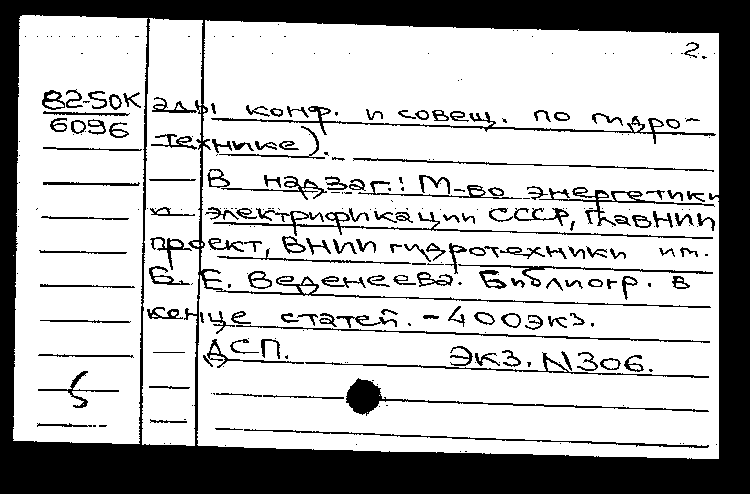 2.
82-5ДК эды конф. и совещ. по гидро-
6096
технике).
В надзаг.: М-во энергетики
и электрификации СССР, ГлавНИИ
проект, ВНИИ гидротехники им.
Б. Е. Веденеева. Библиогр. в
конце статей. - 400экз.
ДСП. Экз. N306.